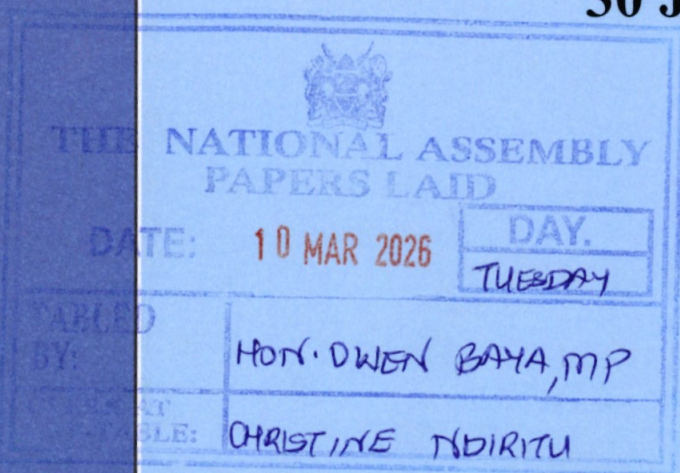 30 J
THE NATIONAL ASSEMBLY
PAPERS LAID
DATE: 10 MAR 2026
DAY.
TUESDAY
TABLED
BY:
HON. OWEN BAYA, MP
CLERK AT
THE-TABLE:
CHRISTINE NDIRITU